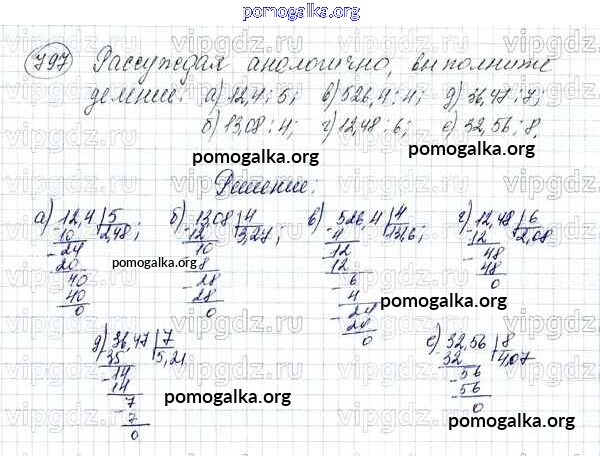 pomogalka.org
797 Рассуждая анологично, выполните
деление: а) 12,4 : 5; в) 526,4 : 4; д) 36,47 : 7;
б) 13,08 : 4; г) 12,48 : 6; е) 32,56 : 8.
pomogalka.org pomogalka.org
Решение:
а) 12,4 | 5 б) 13,08 | 4 в) 526,4 | 4 г) 12,48 | 6
- 10 2,48; - 12 3,27; - 4 131,6; - 12 2,08
- 24 10 12 - 48
20 8 12 48
40 - 28 - 6 0
40 28 4
0 0 - 24
24
0
pomogalka.org
д) 36,47 | 7 е) 32,56 | 8
35 5,21 32 4,07
- 14 - 56
14 56
- 7 0
7
0
pomogalka.org pomogalka.org
vipgdz.ru